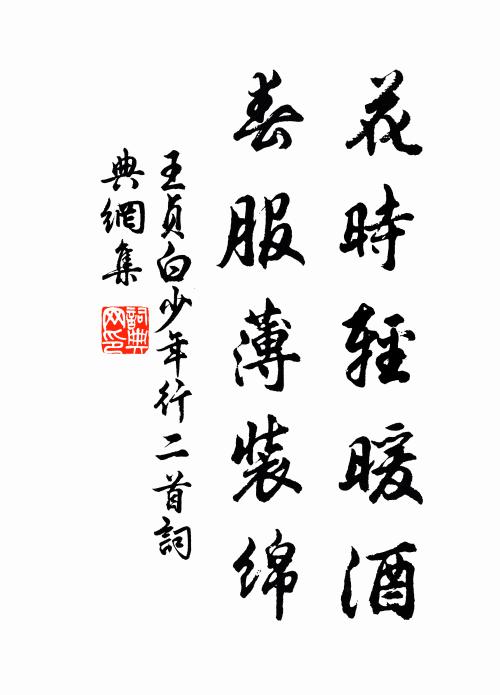 花時輕暖酒
春服薄裝绵
王贞白少年行二首詞
典網集
詞典
网印